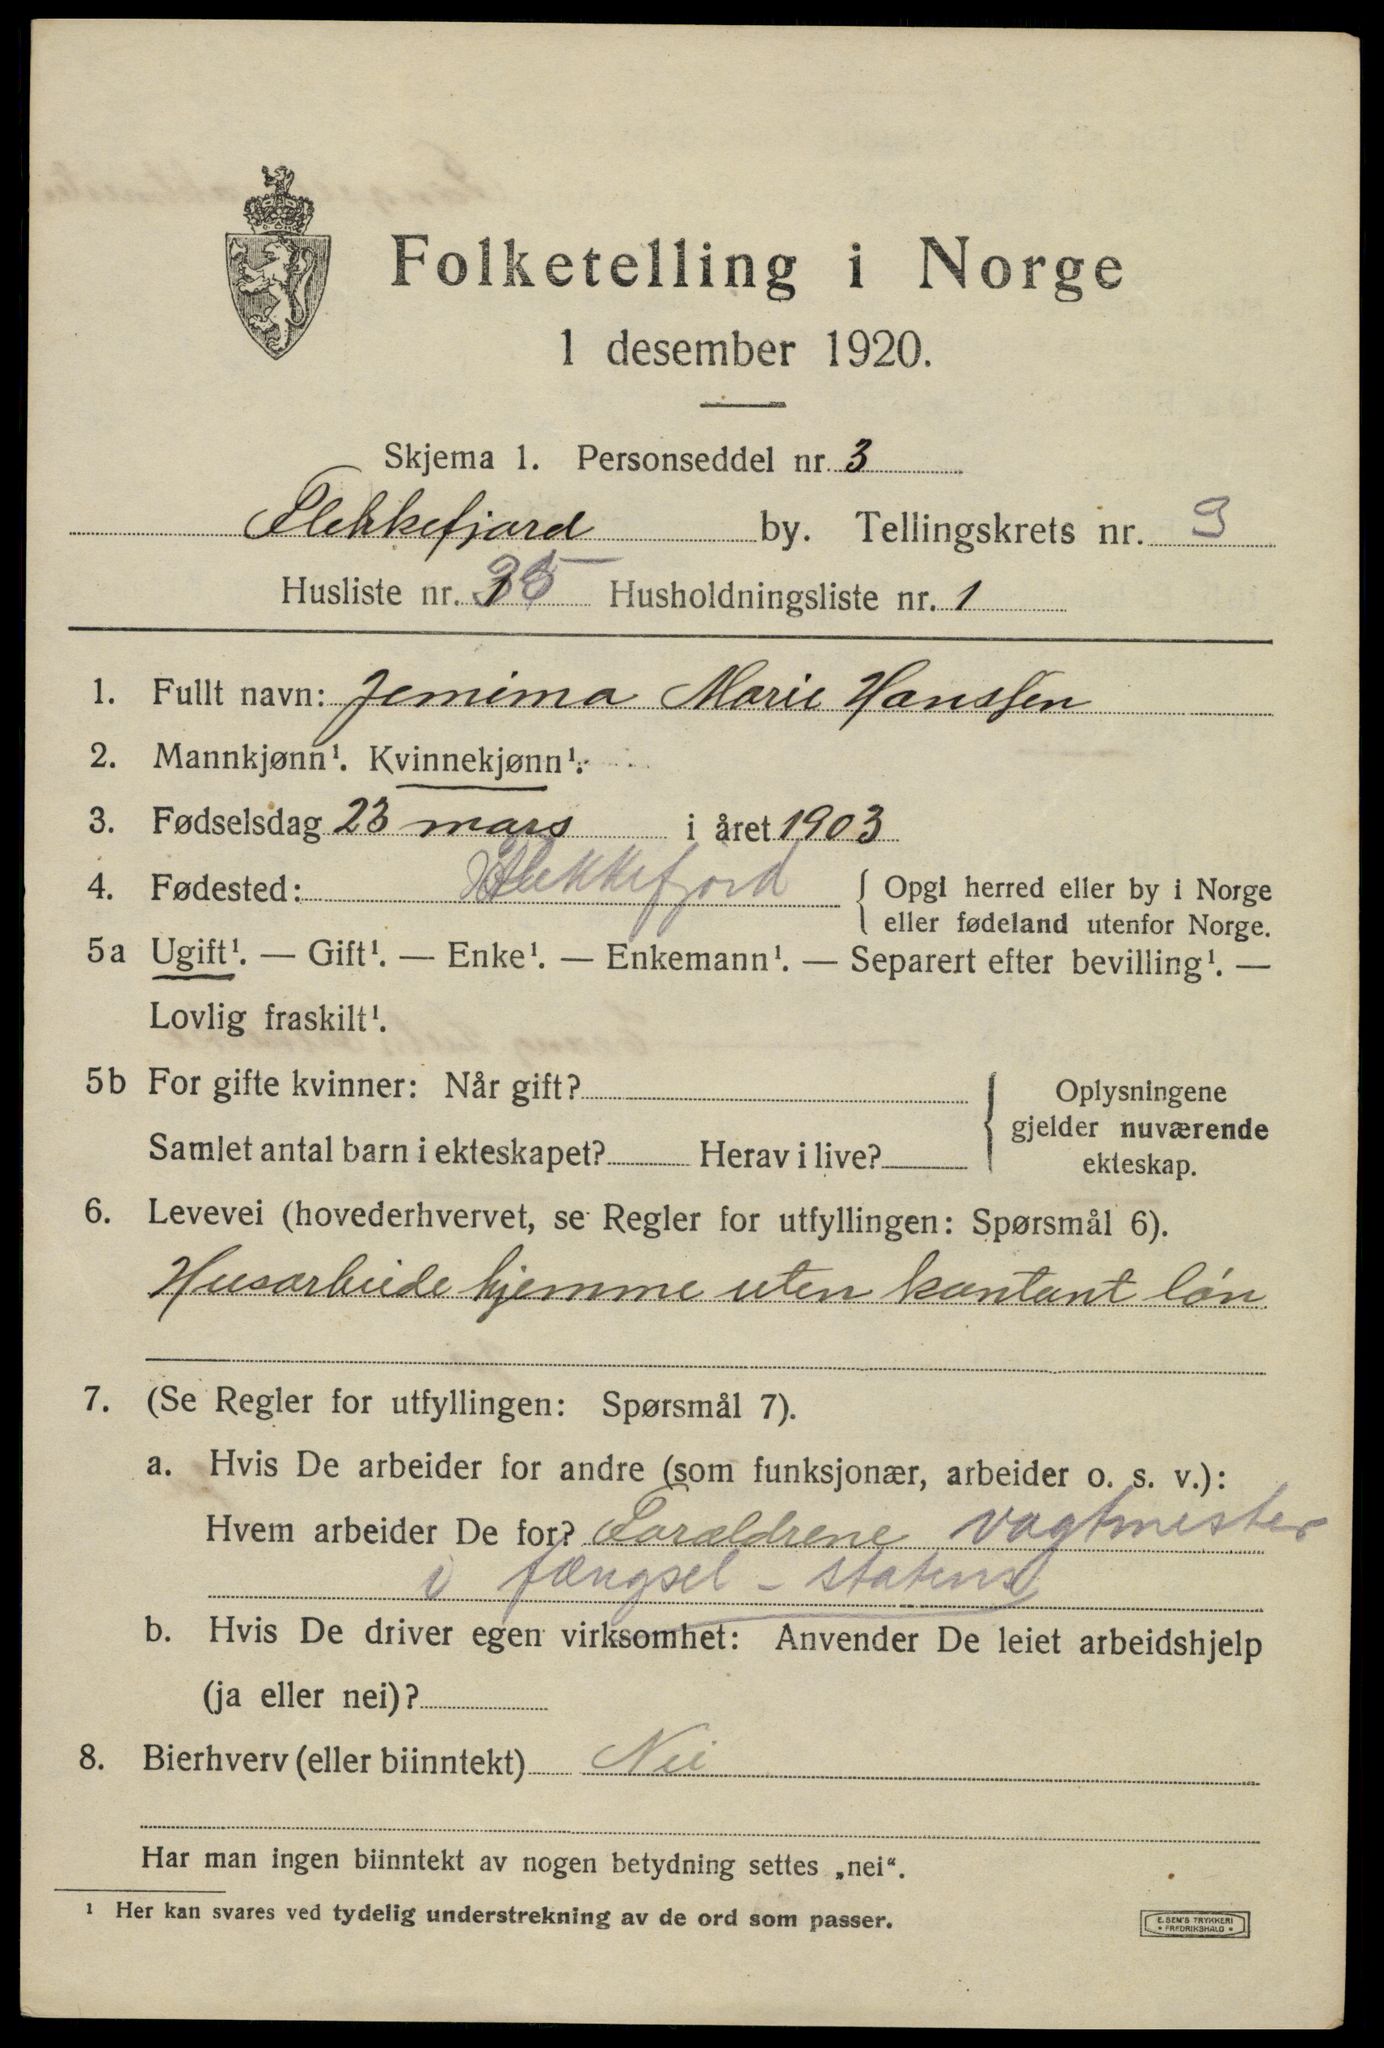 Folketelling i Norge
1 desember 1920.
Skjema 1. Personseddel nr. 3
Flekkefjord by. Tellingskrets nr. 3
Husliste nr. 35 Husholdningsliste nr. 1
1. Fullt navn: Jemima Marie Hanssen
2. Mannkjønn¹. Kvinnekjønn¹.
3. Fødselsdag 23 mars i året 1903
4. Fødested: Flekkefjord { Opgi herred eller by i Norge
eller fødeland utenfor Norge.
5a Ugift¹. — Gift¹. — Enke¹. — Enkemann¹. — Separert efter bevilling¹. —
Lovlig fraskilt¹.
5b For gifte kvinner: Når gift? { Oplysningene
gjelder nuværende
Samlet antal barn i ekteskapet? Herav i live? ekteskap.
6. Levevei (hovederhvervet, se Regler for utfyllingen: Spørsmål 6).
Husarbeide hjemme uten kontant løn
7. (Se Regler for utfyllingen: Spørsmål 7).
a. Hvis De arbeider for andre (som funksjonær, arbeider o. s. v.):
Hvem arbeider De for? Forældrene vagtmester
i fængsel - statens
b. Hvis De driver egen virksomhet: Anvender De leiet arbeidshjelp
(ja eller nei)?
8. Bierhverv (eller biinntekt) Nei
Har man ingen biinntekt av nogen betydning settes „nei“.
¹ Her kan svares ved tydelig understrekning av de ord som passer.
E. SEM'S TRYKKERI
• FREDRIKSHALD •